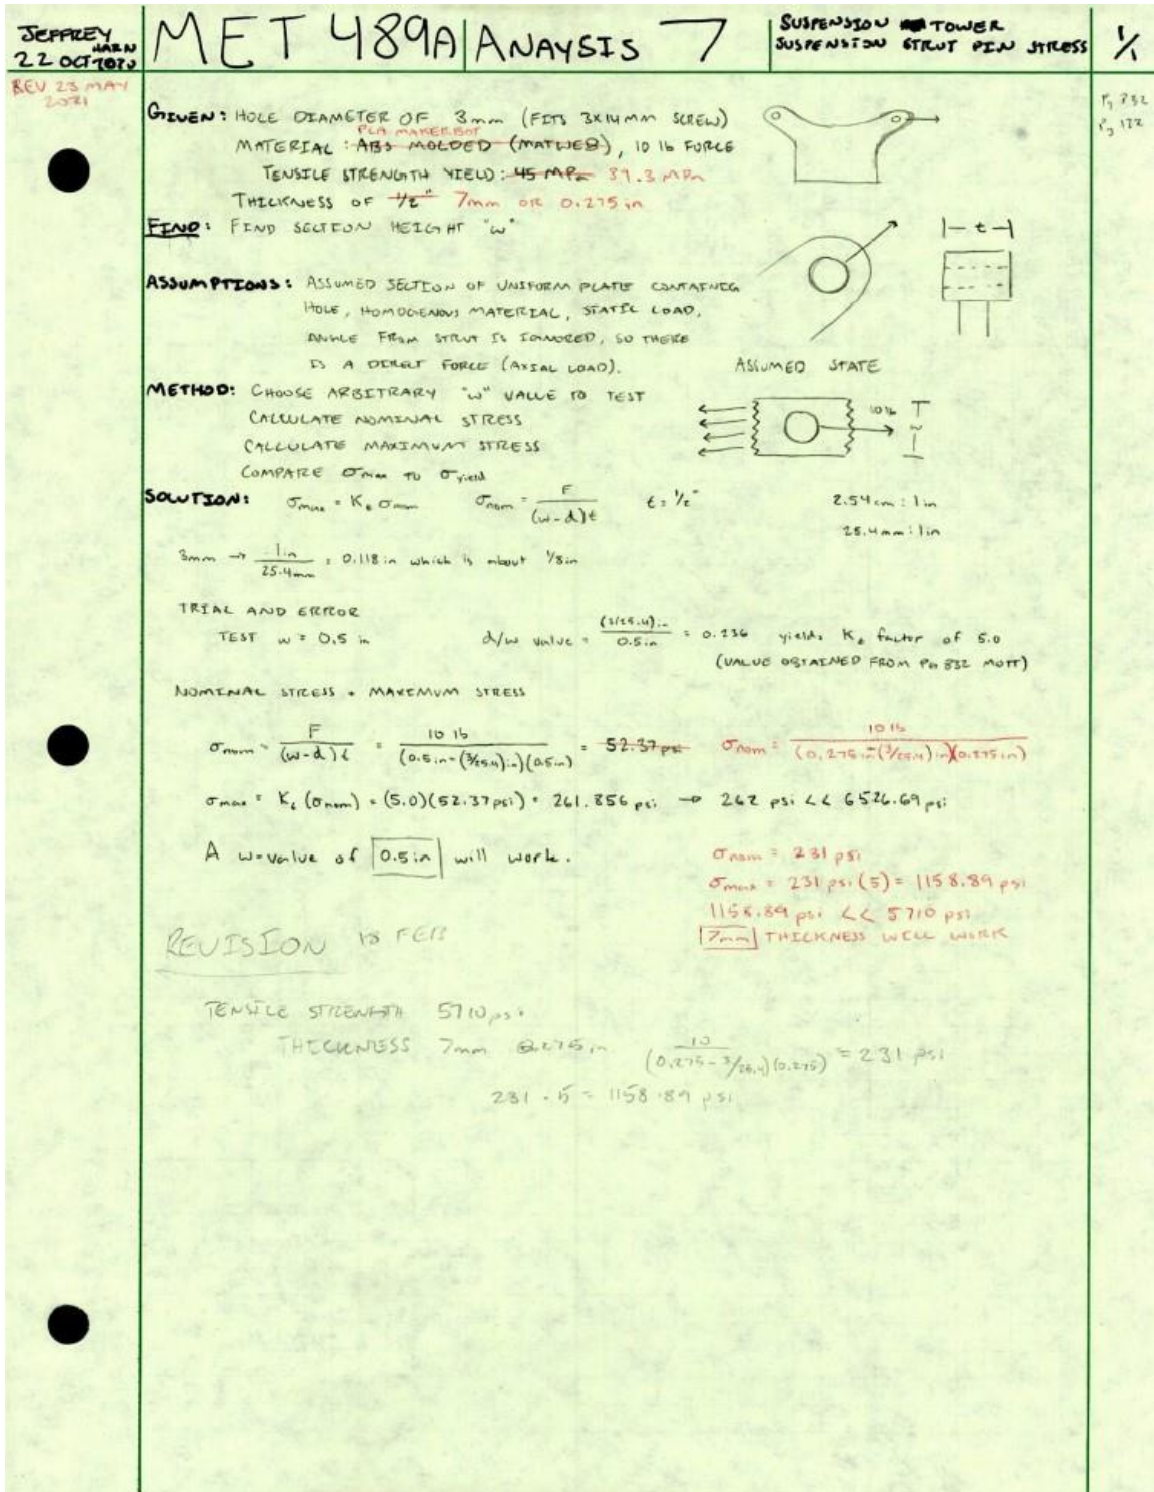 JEFFREY HARN
22 OCT 2020
MET 489A ANAYSIS 7
SUSPENSION TOWER
SUSPENSION STRUT PIN STRESS
1/1
REV 23 MAY
2021
Pg 832
Pg 122
GIVEN: HOLE DIAMETER OF 3mm (FITS 3X14MM SCREW)
PLA MAKERBOT
MATERIAL: ABS MOLDED (MATWEB), 10 lb FORCE
TENSILE STRENGTH YIELD: 45 MPa 39.3 MPa
THICKNESS OF 1/2" 7mm OR 0.275 in
FIND: FIND SECTION HEIGHT "W"
|— t —|
ASSUMPTIONS: ASSUMED SECTION OF UNIFORM PLATE CONTAINIG
HOLE, HOMOGENOUS MATERIAL, STATIC LOAD,
ANGLE FROM STRUT IS IGNORED, SO THERE
IS A DIRECT FORCE (AXIAL LOAD).
ASSUMED STATE
METHOD: CHOOSE ARBITRARY "W" VALUE TO TEST
CALCULATE NOMINAL STRESS
10 lb
w
CALCULATE MAXIMUM STRESS
COMPARE σmax TO σyield
SOLUTION: σmax = Kt σnom σnom = F/(w-d)t t = 1/2"
2.54cm : 1in
25.4mm : 1in
3mm → 1in/25.4mm = 0.118 in which is about 1/8in
TRIAL AND ERROR
TEST w = 0.5 in d/w value = (3/25.4)in/0.5in = 0.236 yields Kt factor of 5.0
(VALUE OBTAINED FROM PG 832 MOTT)
NOMINAL STRESS + MAXIMUM STRESS
σnom = F/(w-d)t = 10 lb/(0.5in-(3/25.4)in)(0.5in) = 52.37 psi σnom = 10 lb/(0.275in-(3/25.4)in)(0.275in)
σmax = Kt (σnom) = (5.0)(52.37psi) = 261.856 psi → 262 psi << 6526.69 psi
A w-value of 0.5in will work.
σnom = 231 psi
σmax = 231 psi (5) = 1158.89 psi
1158.89 psi << 5710 psi
7mm THICKNESS WILL WORK
REVISION 18 FEB
TENSILE STRENGTH 5710 psi
THICKNESS 7mm 0.275 in 10/(0.275-3/25.4)(0.275) = 231 psi
231 · 5 = 1158.89 psi